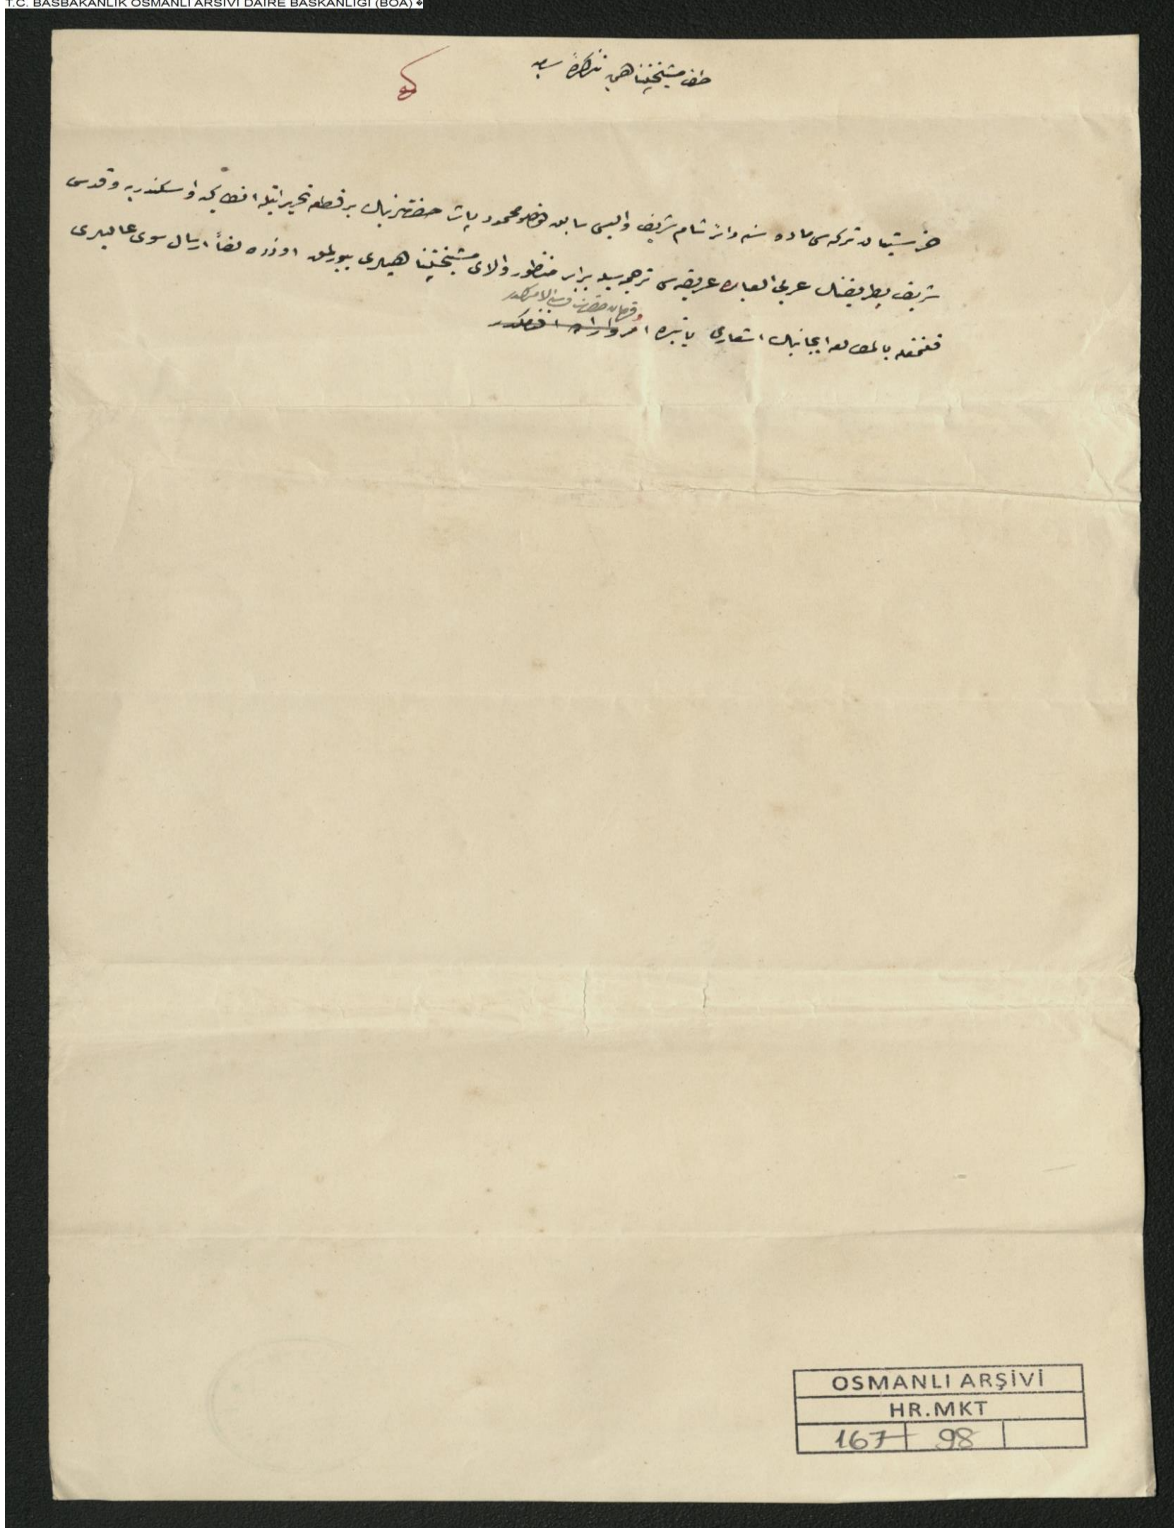 T.C. BAŞBAKANLIK OSMANLI ARŞİVİ DAİRE BAŞKANLIĞI (BOA)
طرف مشيختپناهى يه تذكرهٔ ساميه
خرستيان تركه سى ماده سنه دائر شام شريف واليسى سابق محمود پاشا حضرتلرينك بر قطعه تحريراتيله انطاكيه و اسكندريه و قدس
شريف بطريقنك عربى العباره عريضه سى ترجمه سيله برابر منظور والاى مشيختپناهيلرى بيورلمق اوزره لفاً ارسال سوى عاليلرى
قلنمغله بالمطالعه ايجابنك اشعارى بابنده امر و اراده افندمكدر
OSMANLI ARŞİVİ
HR.MKT
167 98